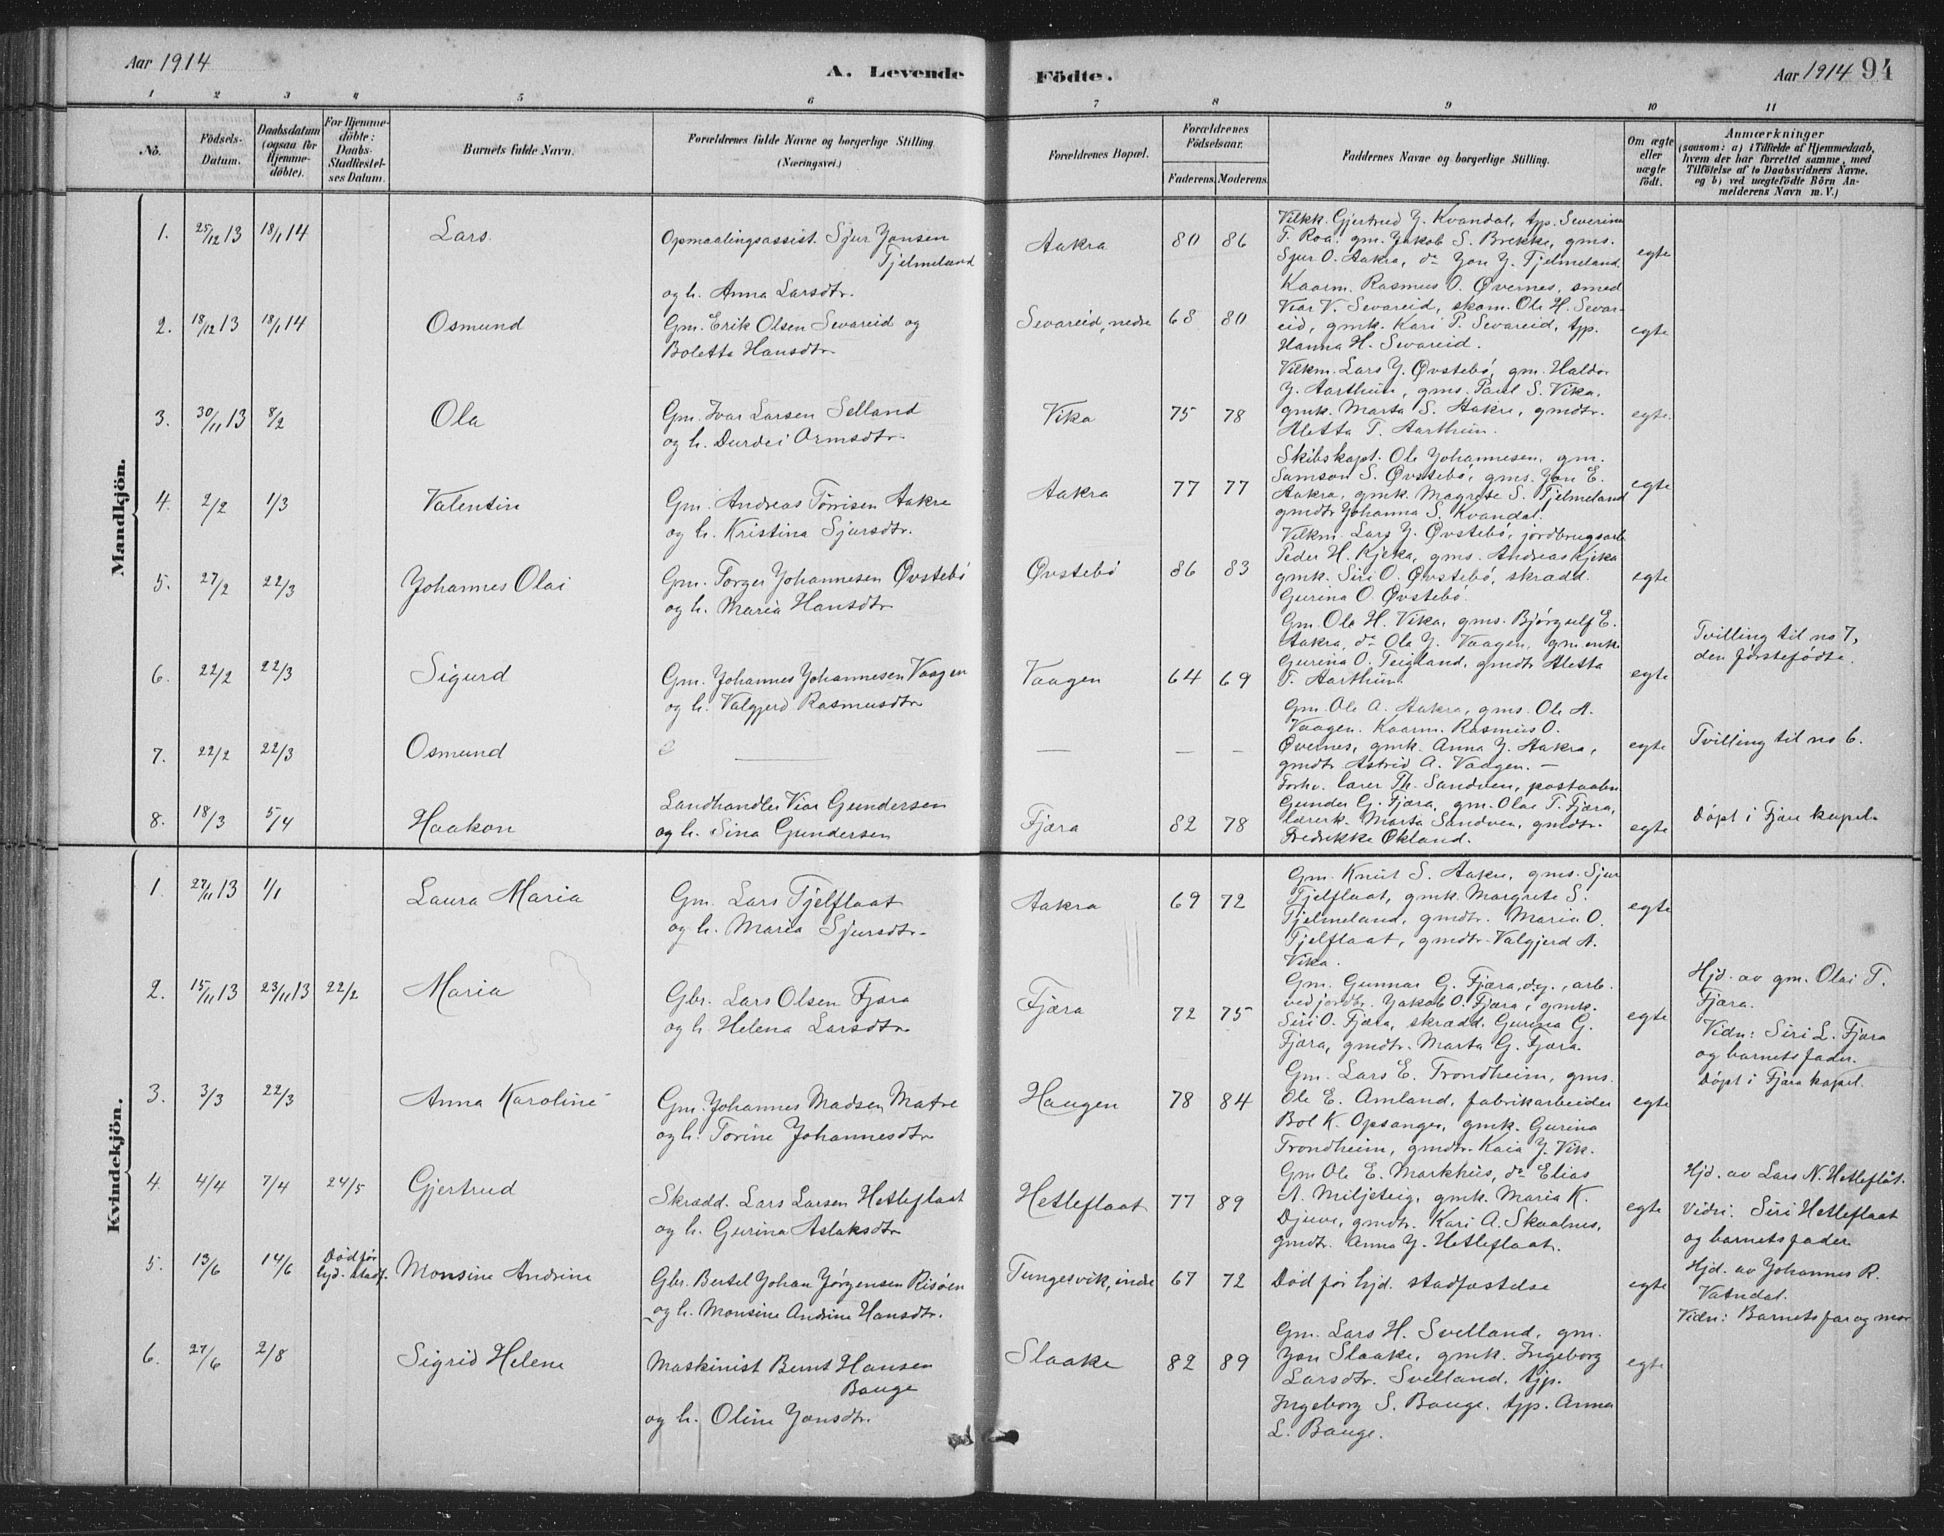 Aar 1914
A. Levende Födte.
Aar 1914 94
1 2 3 4 5 6 7 8 9 10 11
No.
Födsels-Datum.
Daabsdatum (ogsaa for Hjemme-döbte).
For Hjemme-döbte: Daabs-Stadfæstel-ses Datum.
Barnets fulde Navn.
Forældrenes fulde Navne og borgerlige Stilling
(Næringsvei.)
Forældrenes Bopæl.
Forældrenes Födselsaar.
Faderens. Moderens.
Faddernes Navne og borgerlige Stilling.
Om ægte eller uægte födt.
Anmærkninger
(saasom: a) i Tilfælde af Hjemmedaab,
hvem der har forrettet samme, med
Tilföielse af to Daabsvidners Navne.
og b) ved uægtefödte Börn An-
melderens Navn m. V.)
Mandkjön.
1. 25/12 13 18/1 14 Lars.
Opmaalingsassist. Sjur Jansen
Tjelmeland
og h. Anna Larsdtr.
Aakra 80 86
Vilkk. Gjertrud Y. Kvandal, tjp. Severina
T. Roa. gm. Jakob S. Brekke, gms.
Sjur O. Aakra, do Jon Y. Fjelmeland.
egte
2. 18/12 13 18/1 14 Osmund
Gm. Erik Olsen Sevareid og
Boletta Hansdtr.
Sevareid, nedre 68 80
Kaarm. Rasmus O. Øvernes, smed
Viar V. Sevareid, skom. Ole H. Sevar-
eid, gmk. Kari P. Sevareid, tjp.
Hanna H. Sevareid.
egte
3. 30/11 13 8/2 Ola
Gm. Ivar Larsen Selland
og h. Durdei Ormsdtr.
Vika 75 78
Vilkm. Lars Y. Øvstebö, gm. Haldor
Y. Aarthun, gms. Paul S. Vika,
gmk. Marta S. Aakre, gmdtr.
Aletta T. Aarthun.
egte.
4. 2/2 1/3 Valentin
Gm. Andreas Törrisen Aakre
og h. Kristina Sjursdtr.
Aakra 77 77
Skibskapt. Ole Johannesen, gm.
Samson S. Øvstebö, gms. Jon E.
Aakra, gmk. Magrete S. Tjelmeland
gmdtr Johanna S. Kvandal.
egte
5. 27/2 22/3 Johannes Olai
Gm. Torger Johannesen Øvstebö
og h. Maria Hansdtr.
Øvstebö 86 83
Vilkm. Lars Y. Øvstebö, jordbrugsarb.
Peder H. Kjeka, gms. Andreas Kjeka
gmk. Siri O. Øvstebö, skrædd.
Gurina O. Øvstebö.
egte
6. 22/2 22/3 Sigurd
Gm. Johannes Johannesen Vaagen
og h. Valgjerd Rasmusdtr
Vaagen 64 69
Gm. Ole H. Vika, gms. Bjørgulf E.
Aakra, do Ole Y. Vaagen, gm.enk.
Gurina O. Teigland, gmdtr Aletta
T. Aarthun.
egte
Tvilling til no 7,
den förstefödte.
7. 22/2 22/3 Osmund
— — —
Gm. Ole A. Aakra, gms. Ole A.
Vaagen. Kaarm. Rasmus O.
Øvernes, gmk. Anna Y. Aakra,
gmdtr Astrid A. Vaagen. —
egte
Tvilling til no 6.
8. 18/3 5/4 Haakon
Landhandler Viar Gundersen
og h. Sina Gundersen
Fjæra 82 78
Forhv. lærer Th. Sandven, postaabn.
Gunder G. Fjæra, gm. Olai T. Fjæra,
lærerk. Marta Sandven, gmdtr.
Fredrikke Økland.
egte
Döpt i Fjære kapel.
Kvindekjön.
1. 27/11 13 1/1 Laura Maria
Gm. Lars Tjelflaat
og h. Maria Sjursdtr.
Aakra 69 72
Gm. Knut S. Aakre, gms. Sjur
Tjelflaat, gmk. Margrete S.
Tjelmeland, gmdtr. Maria O.
Tjelflaat, gmdtr. Valgjerd A.
Vika.
egte
2. 15/11 13 23/11 13 22/2 Maria
Gbr. Lars Olsen Fjæra
og h. Helena Larsdtr
Fjæra 72 75
Gm. Gunnar G. Fjæra, dg., arb.
ved jordbr. Jakob O. Fjæra, gmk.
Siri O. Fjæra, skrædd. Gurina G.
Fjæra, gmdtr. Marta G. Fjæra.
egte
Hjd. av gm. Olai T.
Fjæra.
Vidn: Siri L. Fjæra
og barnets fader.
Döpt i Fjæra kapel.
3. 3/3 22/3 Anna Karoline
Gm. Johannes Madsen Matre
og h. Torine Johannesdtr
Haugen 78 84
Gm. Lars E. Trondheim, gms.
Ole E. Amland, fabrikarbeider
Bol K. Opsanger, gmk. Gurina
Trondheim, gmdtr. Kaia Y. Vik.
egte
4. 4/4 7/4 24/5 Gjertrud
Skrædd. Lars Larsen Hetleflaat
og h. Gurina Aslaksdtr
Hetleflaat 77 89
Gm Ole E. Markhus, do Elias
A. Miljeteig, gmk. Maria K.
Djuve, gmdtr. Kari A. Skaalnes,
gmdtr. Anna Y. Hetleflaat.
egte
Hjd. av Lars N. Hetleflåt.
Vidn: Siri Hetleflaat
og barnets fader
5. 13/6 14/6 Död för hjd. stadf. Monsine Andrine
Gbr. Bertel Johan Jörgensen Risöen
og h. Monsine Andrine Hansdtr.
Tungesvik, indre 67 72
Död för hjd. stadfæstelse
egte
Hjd. av Johannes R.
Vatndal.
Vidn: Barnets far og mor
6. 27/6 2/8 Sigrid Helene
Maskinist Bernt Hansen
Bauge
og h. Oline Jansdtr.
Slaake 82 89
Gm. Lars H. Svelland, gm.
Jon Slaake, gmk. Ingeborg
Larsdtr. Svelland. tjp.
Ingeborg S. Bauge. tjp. Anna
L. Bauge.
egte